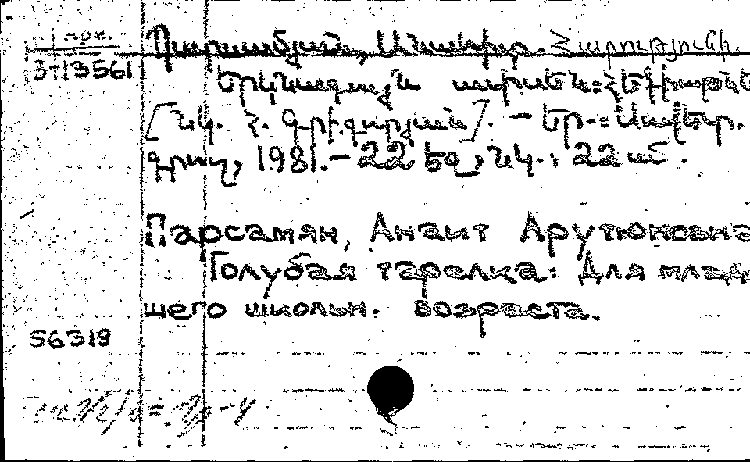 Պարսամյան, Անահիտ Հարությունի.
3713561
Երկնագույն ափսեն: Հեքիաթնե
[Նկ. Հ. Գրիգորյան]. – Եր.: Սովետ.
գրող, 1981. – 22 էջ, նկ.; 22 սմ.
Парсамян, Анаит Арутюновна
Голубая тарелка: Для млад
щего школьн. возраста.
56319